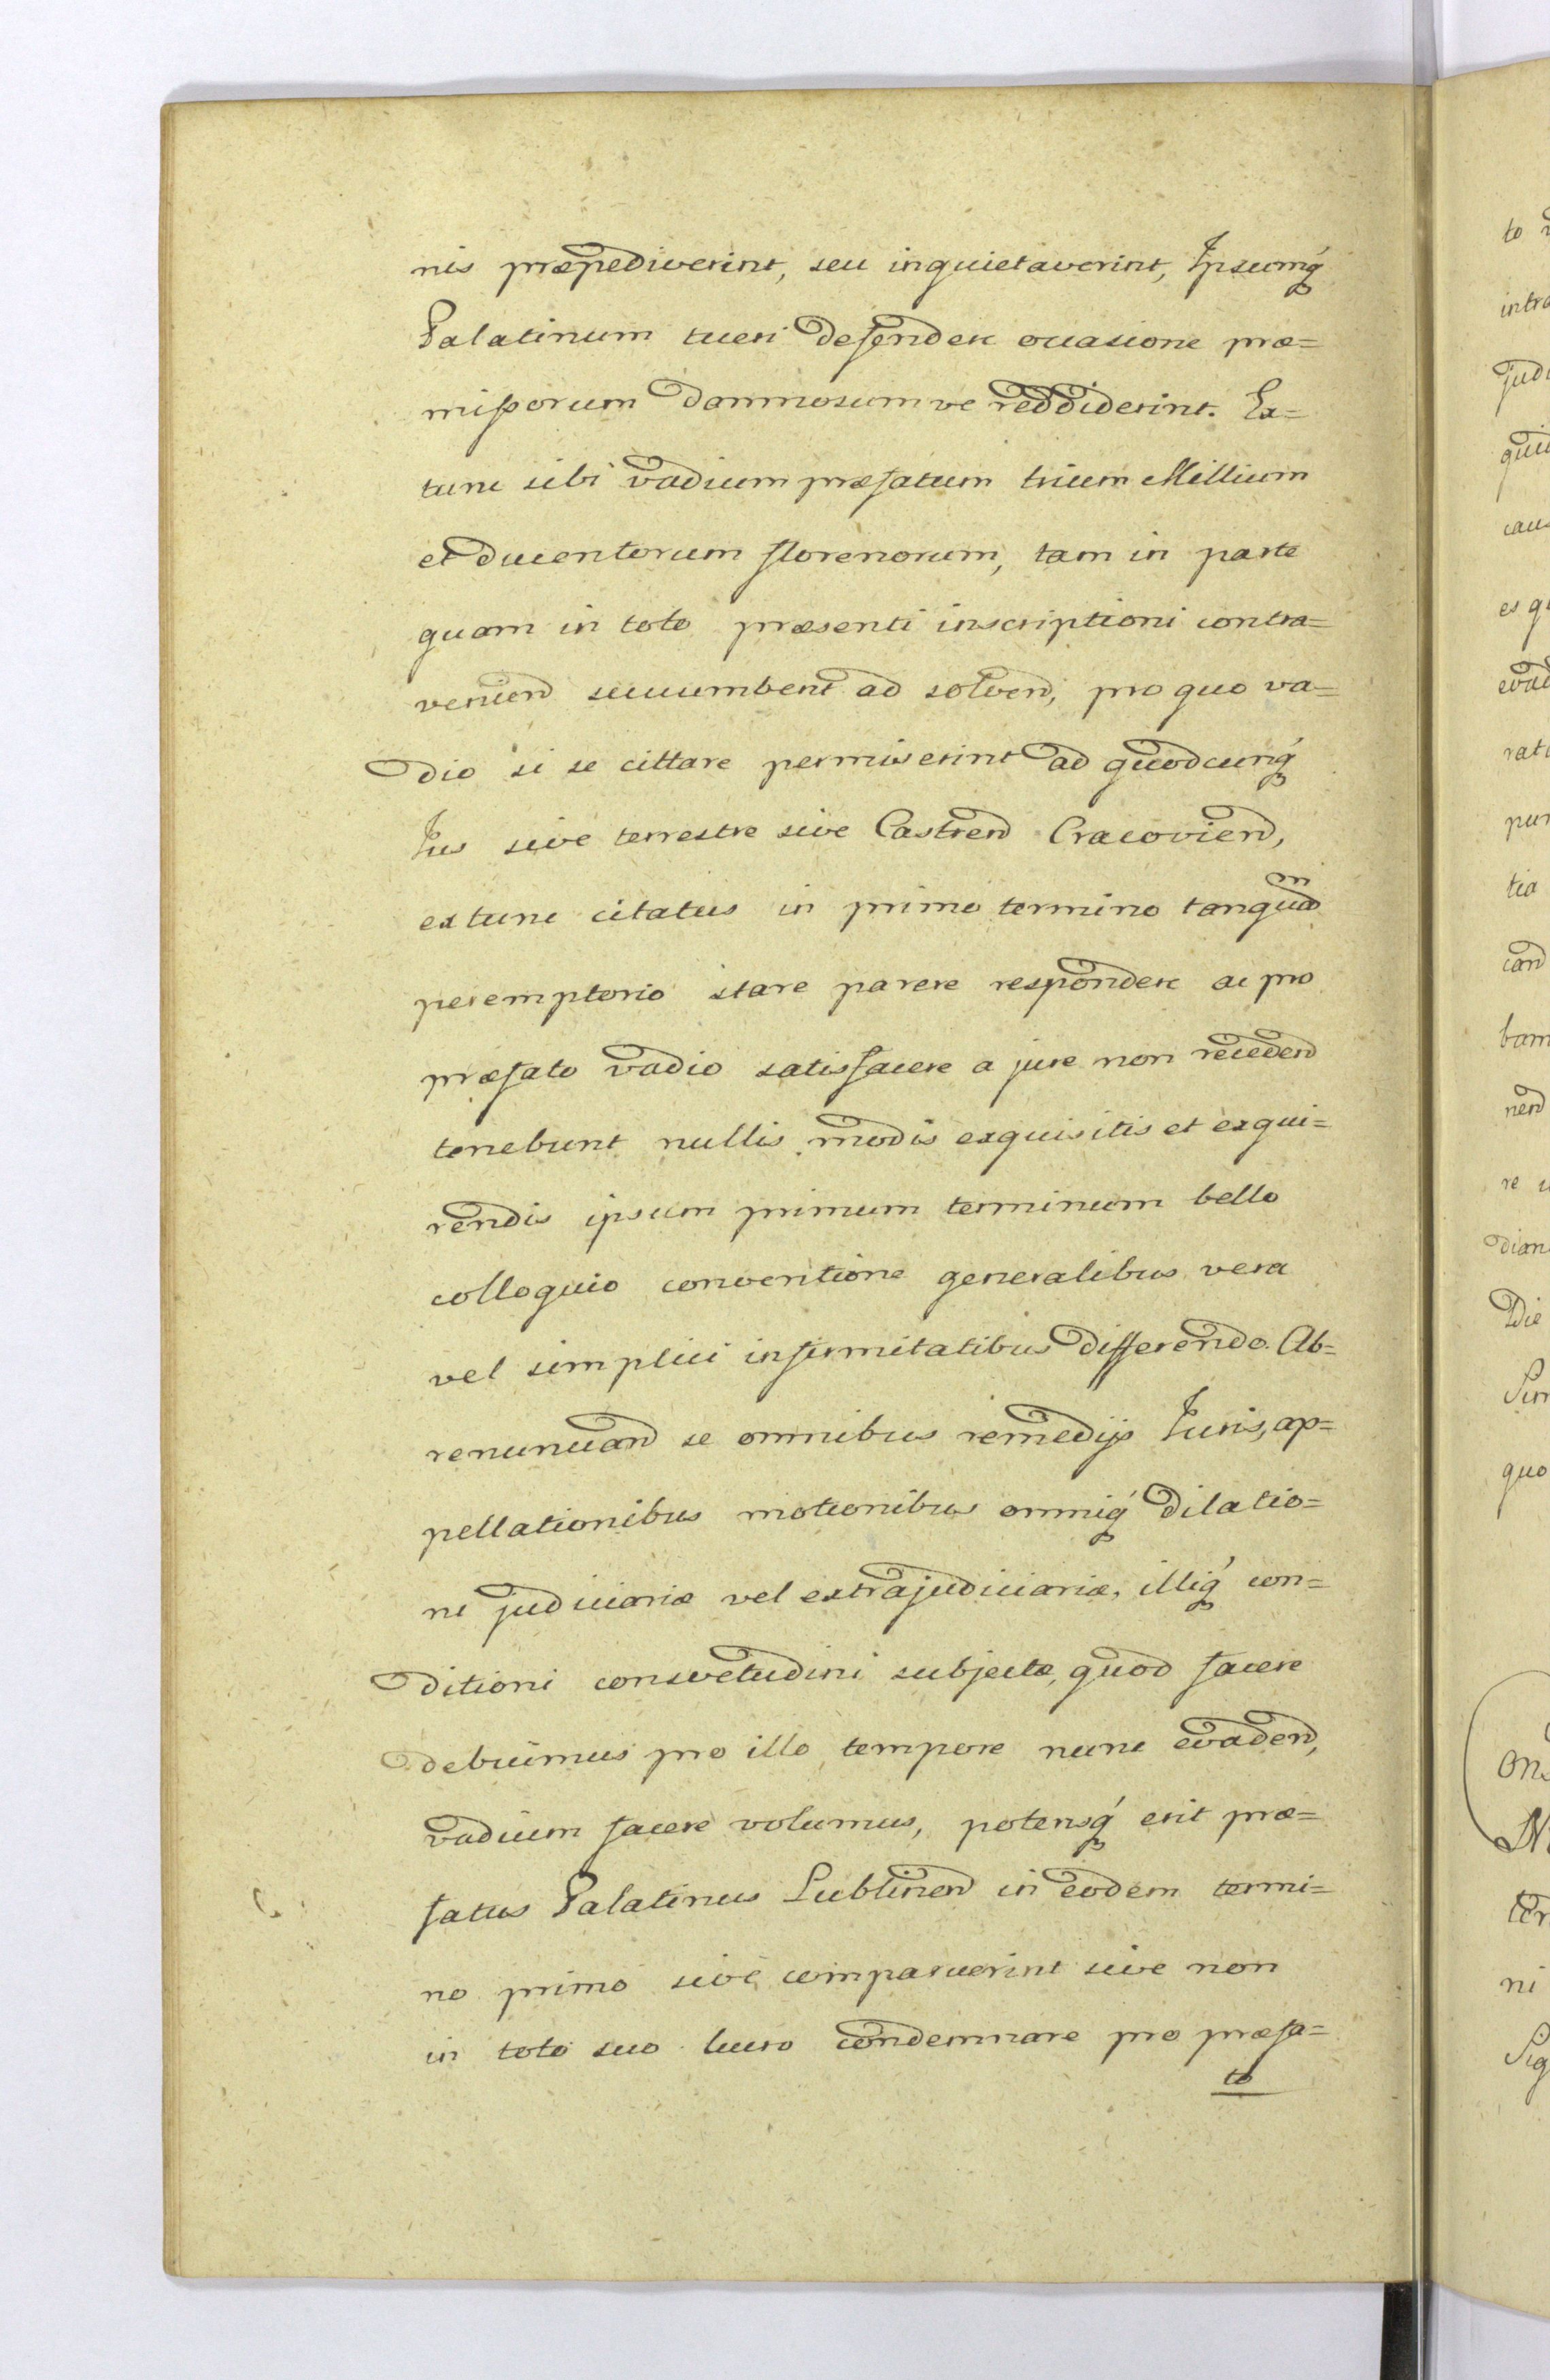 nis præpediverint, seu inquietaverint, Ipsumq́
Palatinum tueri defendere occasione præ=
missorum damnosumve reddiderint. Ex=
tunc sibi vadium præfatum trium Millium
et ducentorum florenorum, tam in parte
quam in toto præsenti inscriptioni contra=
veniend succumbent ad solvend, pro quo va=
dio si se cittare permiserint ad quodcunq́
Jus sive terrestre sive Castren Cracovien,
extunc citatus in primo termino tanquam
peremptorio stare parere respondere ac pro
præfato vadio satisfacere a jure non recedend
tenebunt nullis modis exquisitis et exqui=
rendis ipsum primum terminum bello
colloquio conventione generalibus vera
vel simplici infirmitatibus differendo. Ab=
renunciand se omnibus remedijs Juris, ap=
pellationibus motionibus omniq́ dilatio=
ni judiciariæ vel extrajudiciariæ, illiq́ con=
ditioni consvetudini subjectæ, quod facere
debuimus pro illo tempore nunc evadend,
vadium facere volumus, potensq́ erit præ=
fatus Palatinus Lublinen in eodem termi=
no primo sive comparuerint sive non
in toto suo lucro condemnare pro præfa=
to
to
intra
judi
qui
caus
es qu
evad
rati
pur
tia
can
bam
nend
re
dian
Die
Sin
quo
ter
ni
Sig